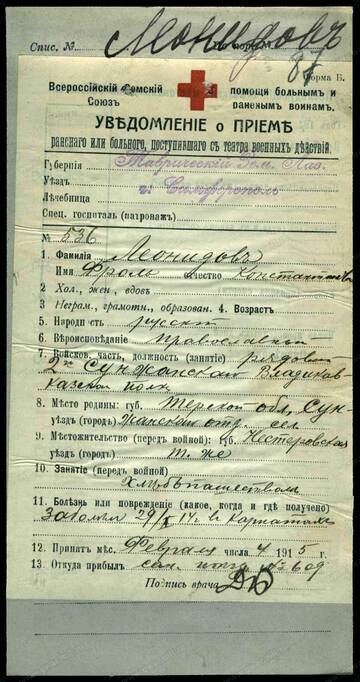 Спис. №
Леонидовъ
87
Форма Б.
Всероссійскій Земскій Союзъ
помощи больнымъ и раненымъ воинамъ.
УВѢДОМЛЕНІЕ о ПРІЕМѢ
раненаго или больного, поступившаго съ театра военныхъ дѣйствій.
Губернія Таврическій Зем. Лаз.
Уѣзд. г. Симферополь
Лечебница
Спец. госпиталь (патронаж)
№ 536
1 Фамилія Леонидовъ
Имя Фролъ отчество Константинов
2 Хол., жен., вдовъ
3 Неграм., грамотн., образован. 4. Возраст.
5. Народность русскій
6. Вѣроисповѣданіе православный
7. Войсков. часть, должность (занятіе) рядовой
2й Сунжанскій Владикав-
казскій полк
8. Мѣсто родины: губ. Терской обл, Сун-
уѣзд (город) жанскій отд. сел.
9. Мѣстожительство (перед войной): губ. Нестеровская
уѣзд (город) т. же
10. Занятіе (перед войной)
хлѣбопашествомъ
11. Болѣзнь или поврежденіе (какое, когда и где получено)
Заболѣлъ 29/X 14 г. в Карпатахъ
12. Принят мѣс. Февраля числа 4 1915 г.
13. Откуда прибыл сан. поѣзд № 609
Подпись врача